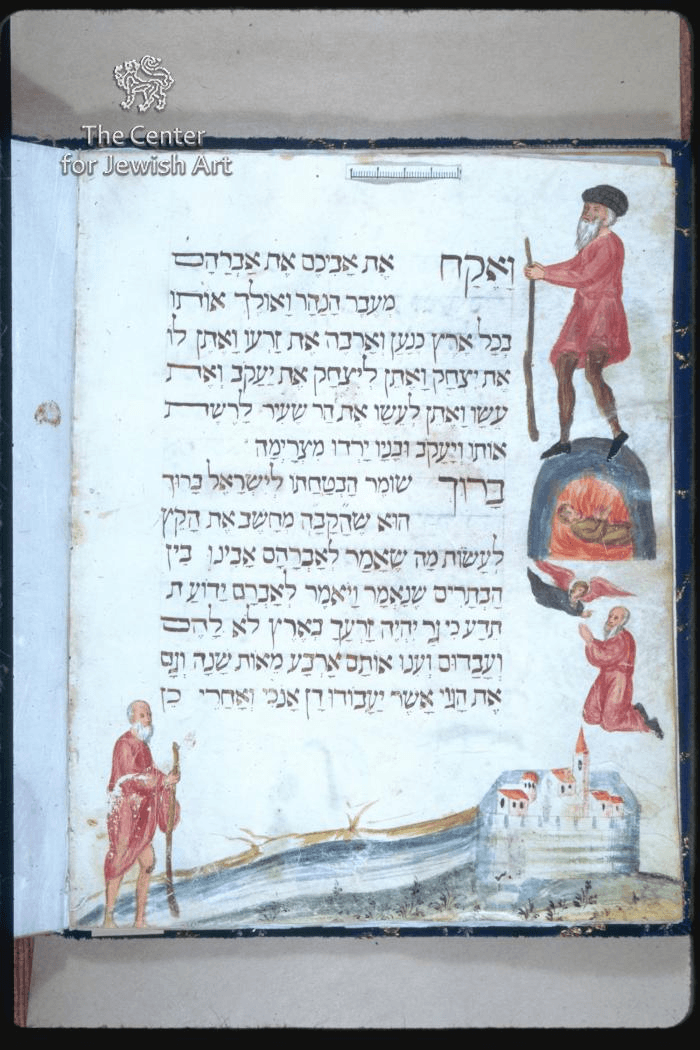 The Center
for Jewish Art
וָאֶקַּח אֶת אֲבִיכֶם אֶת אַבְרָהָם
מֵעֵבֶר הַנָּהָר וָאוֹלֵךְ אוֹתוֹ
בְּכָל אֶרֶץ כְּנַעַן וָאַרְבֶּה אֶת זַרְעוֹ וָאֶתֵּן לוֹ
אֶת יִצְחָק וָאֶתֵּן לְיִצְחָק אֶת יַעֲקֹב וְאֶת
עֵשָׂו וָאֶתֵּן לְעֵשָׂו אֶת הַר שֵׂעִיר לָרֶשֶׁת
אוֹתוֹ וְיַעֲקֹב וּבָנָיו יָרְדוּ מִצְרָיְמָה
בָּרוּךְ שׁוֹמֵר הַבְטָחָתוֹ לְיִשְׂרָאֵל בָּרוּךְ
הוּא שֶׁהַקָּבָּה מְחַשֵּׁב אֶת הַקֵּץ
לַעֲשׂוֹת מַה שֶּׁאָמַר לְאַבְרָהָם אָבִינוּ בֵּין
הַבְּתָרִים שֶׁנֶּאֱמַר וַיֹּאמֶר לְאַבְרָם יָדוֹעַ ת
תֵּדַע כִּי גֵר יִהְיֶה זַרְעֲךָ בְּאֶרֶץ לֹא לָהֶם
וַעֲבָדוּם וְעִנּוּ אוֹתָם אַרְבַּע מֵאוֹת שָׁנָה וְגַם
אֶת הַגּוֹי אֲשֶׁר יַעֲבוֹדוּ דָּן אָנֹכִי וְאַחֲרֵי כֵן